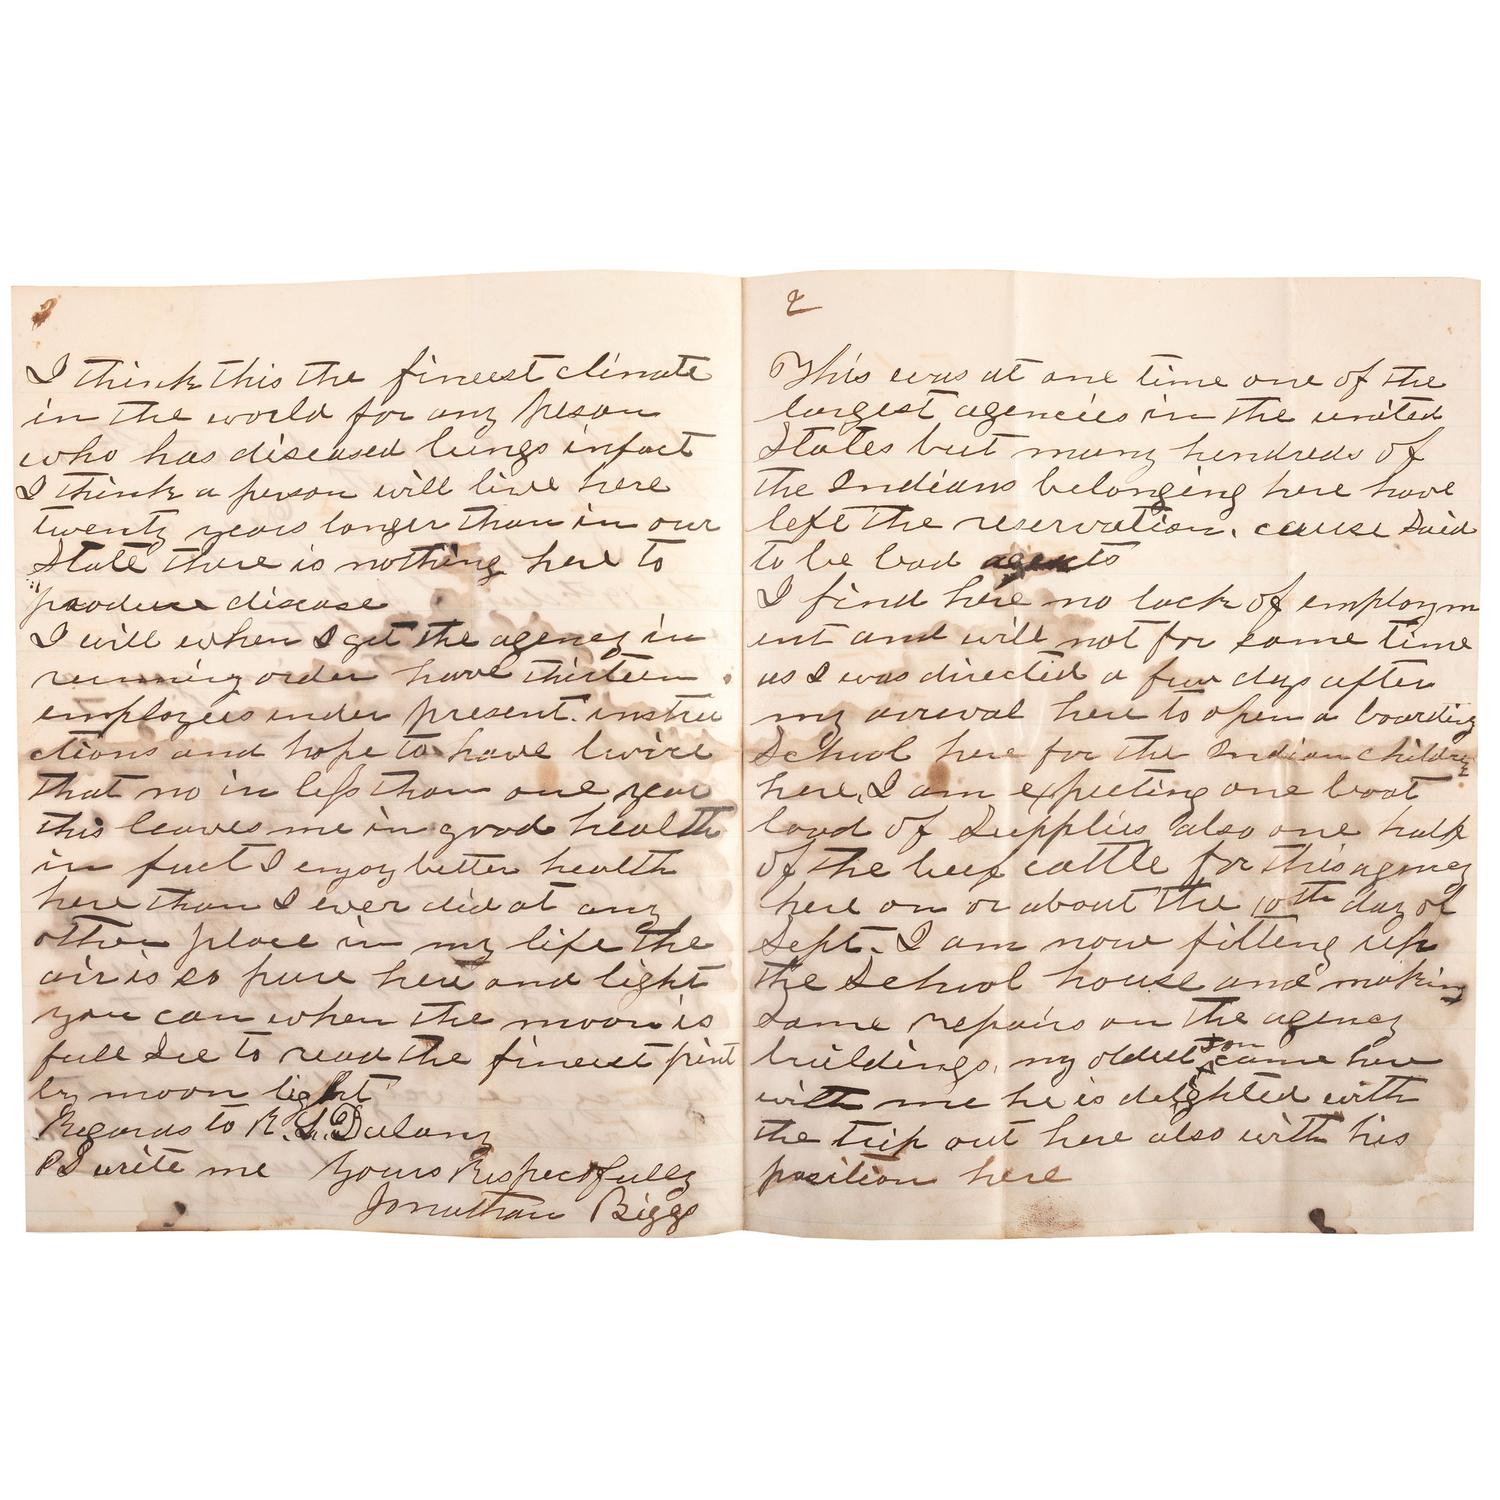 I think this the fineest climate
in the world for any peson
who has diseased lungs infact
I think a person will live here
twenty years longer than in our
State there is nothing here to
produce disease
I will when I get the agency in
running order have thirteen
employees under present instru
ctions and hope to have twice
that no in less than one year
this leaves me in good health
in fact I enjoy better health
here than I ever did at any
other place in my life the
air is so pure here and light
you can when the moon is
full See to read the fineest print
by moon light
Regards to R. L. Dulany
PS write me Yours Respectfully
Jonathan Biggs
2
This was at one time one of the
largest agencies in the united
States but many hundreds of
the Indians belonging here have
left the reservation. cause Said
to be bad agents
I find here no lack of employm
ent and will not for some time
as I was directed a few days after
my arrival here to open a boarding
School here for the Indian children
here. I am expecting one boat
load of Supplies also one half
of the beef cattle for this agency
here on or about the 10th day of
Sept. I am now fitting up
the School house and making
Some repairs on the agency
buildings. my oldest son came here
with me he is delighted with
the trip out here also with his
position here